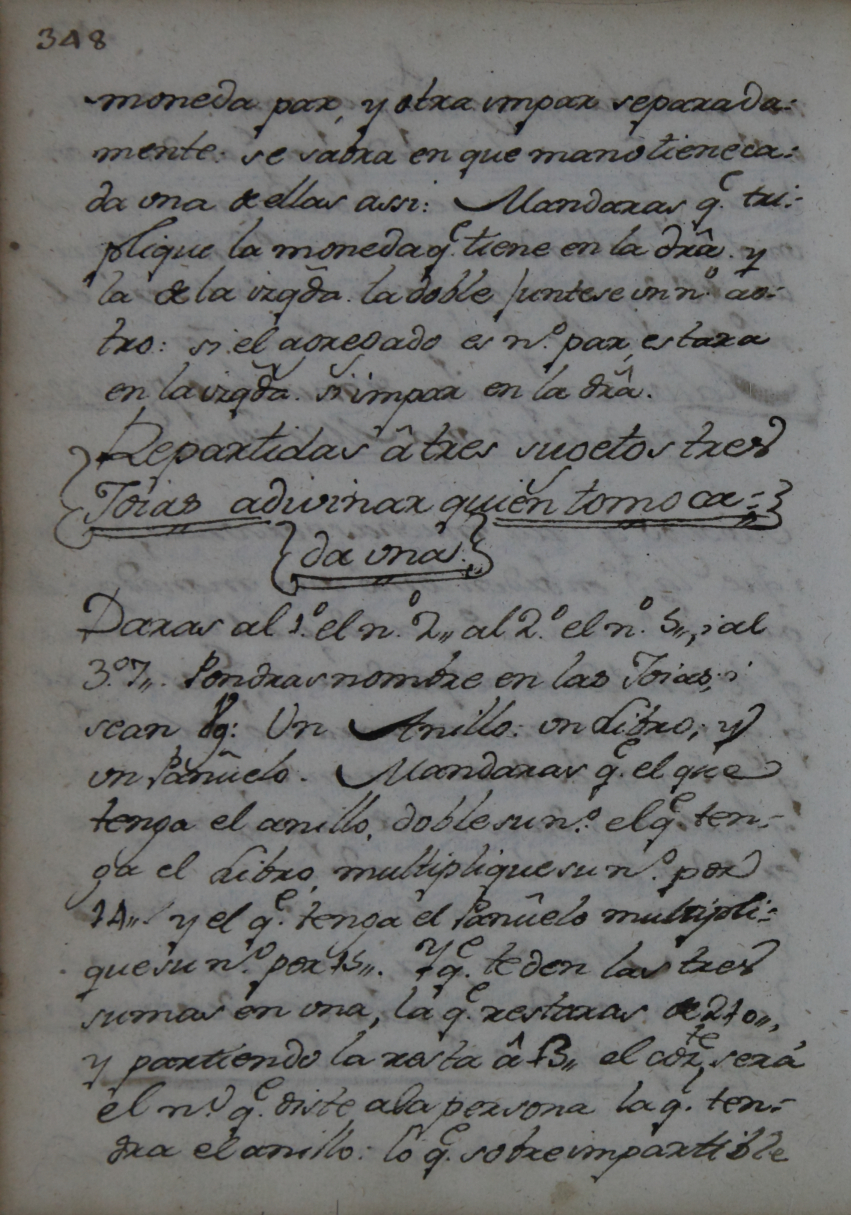 348
moneda par, y otra impar separada-
mente: se sabra en que mano tiene ca-
da una de ellas assi: Mandaras q.e tri-
plique la moneda q.e tiene en la drâ. y
la de la izqda. la doble juntese un n.o a o-
tro: si el agregado es n.o par, estara
en la izqda. si impar en la drâ.
Repartidas â tres sugetos tres
Joias adivinar quien tomo ca-
da una.
Daras al 1.o el n.o 2,, al 2.o el n.o 5,, i al
3.o 7,,. Pondras nombre en las Joias, i
sean Vg: Un Anillo: un Libro; y
un Pañuelo. Mandaras q.e el que
tenga el anillo, doble su n.o el q.e ten-
ga el Libro, multiplique su n.o por
14,, y el q.e tenga el Pañuelo multipli-
que su n.o por 15,,. Y q.e te den las tres
sumas en una, la q.e restaras de 210,,,
y partiendo la resta â 13,, el córte, será
el n.o q.e diste a la persona la q. ten-
dra el anillo: lo q.e sobre impartible